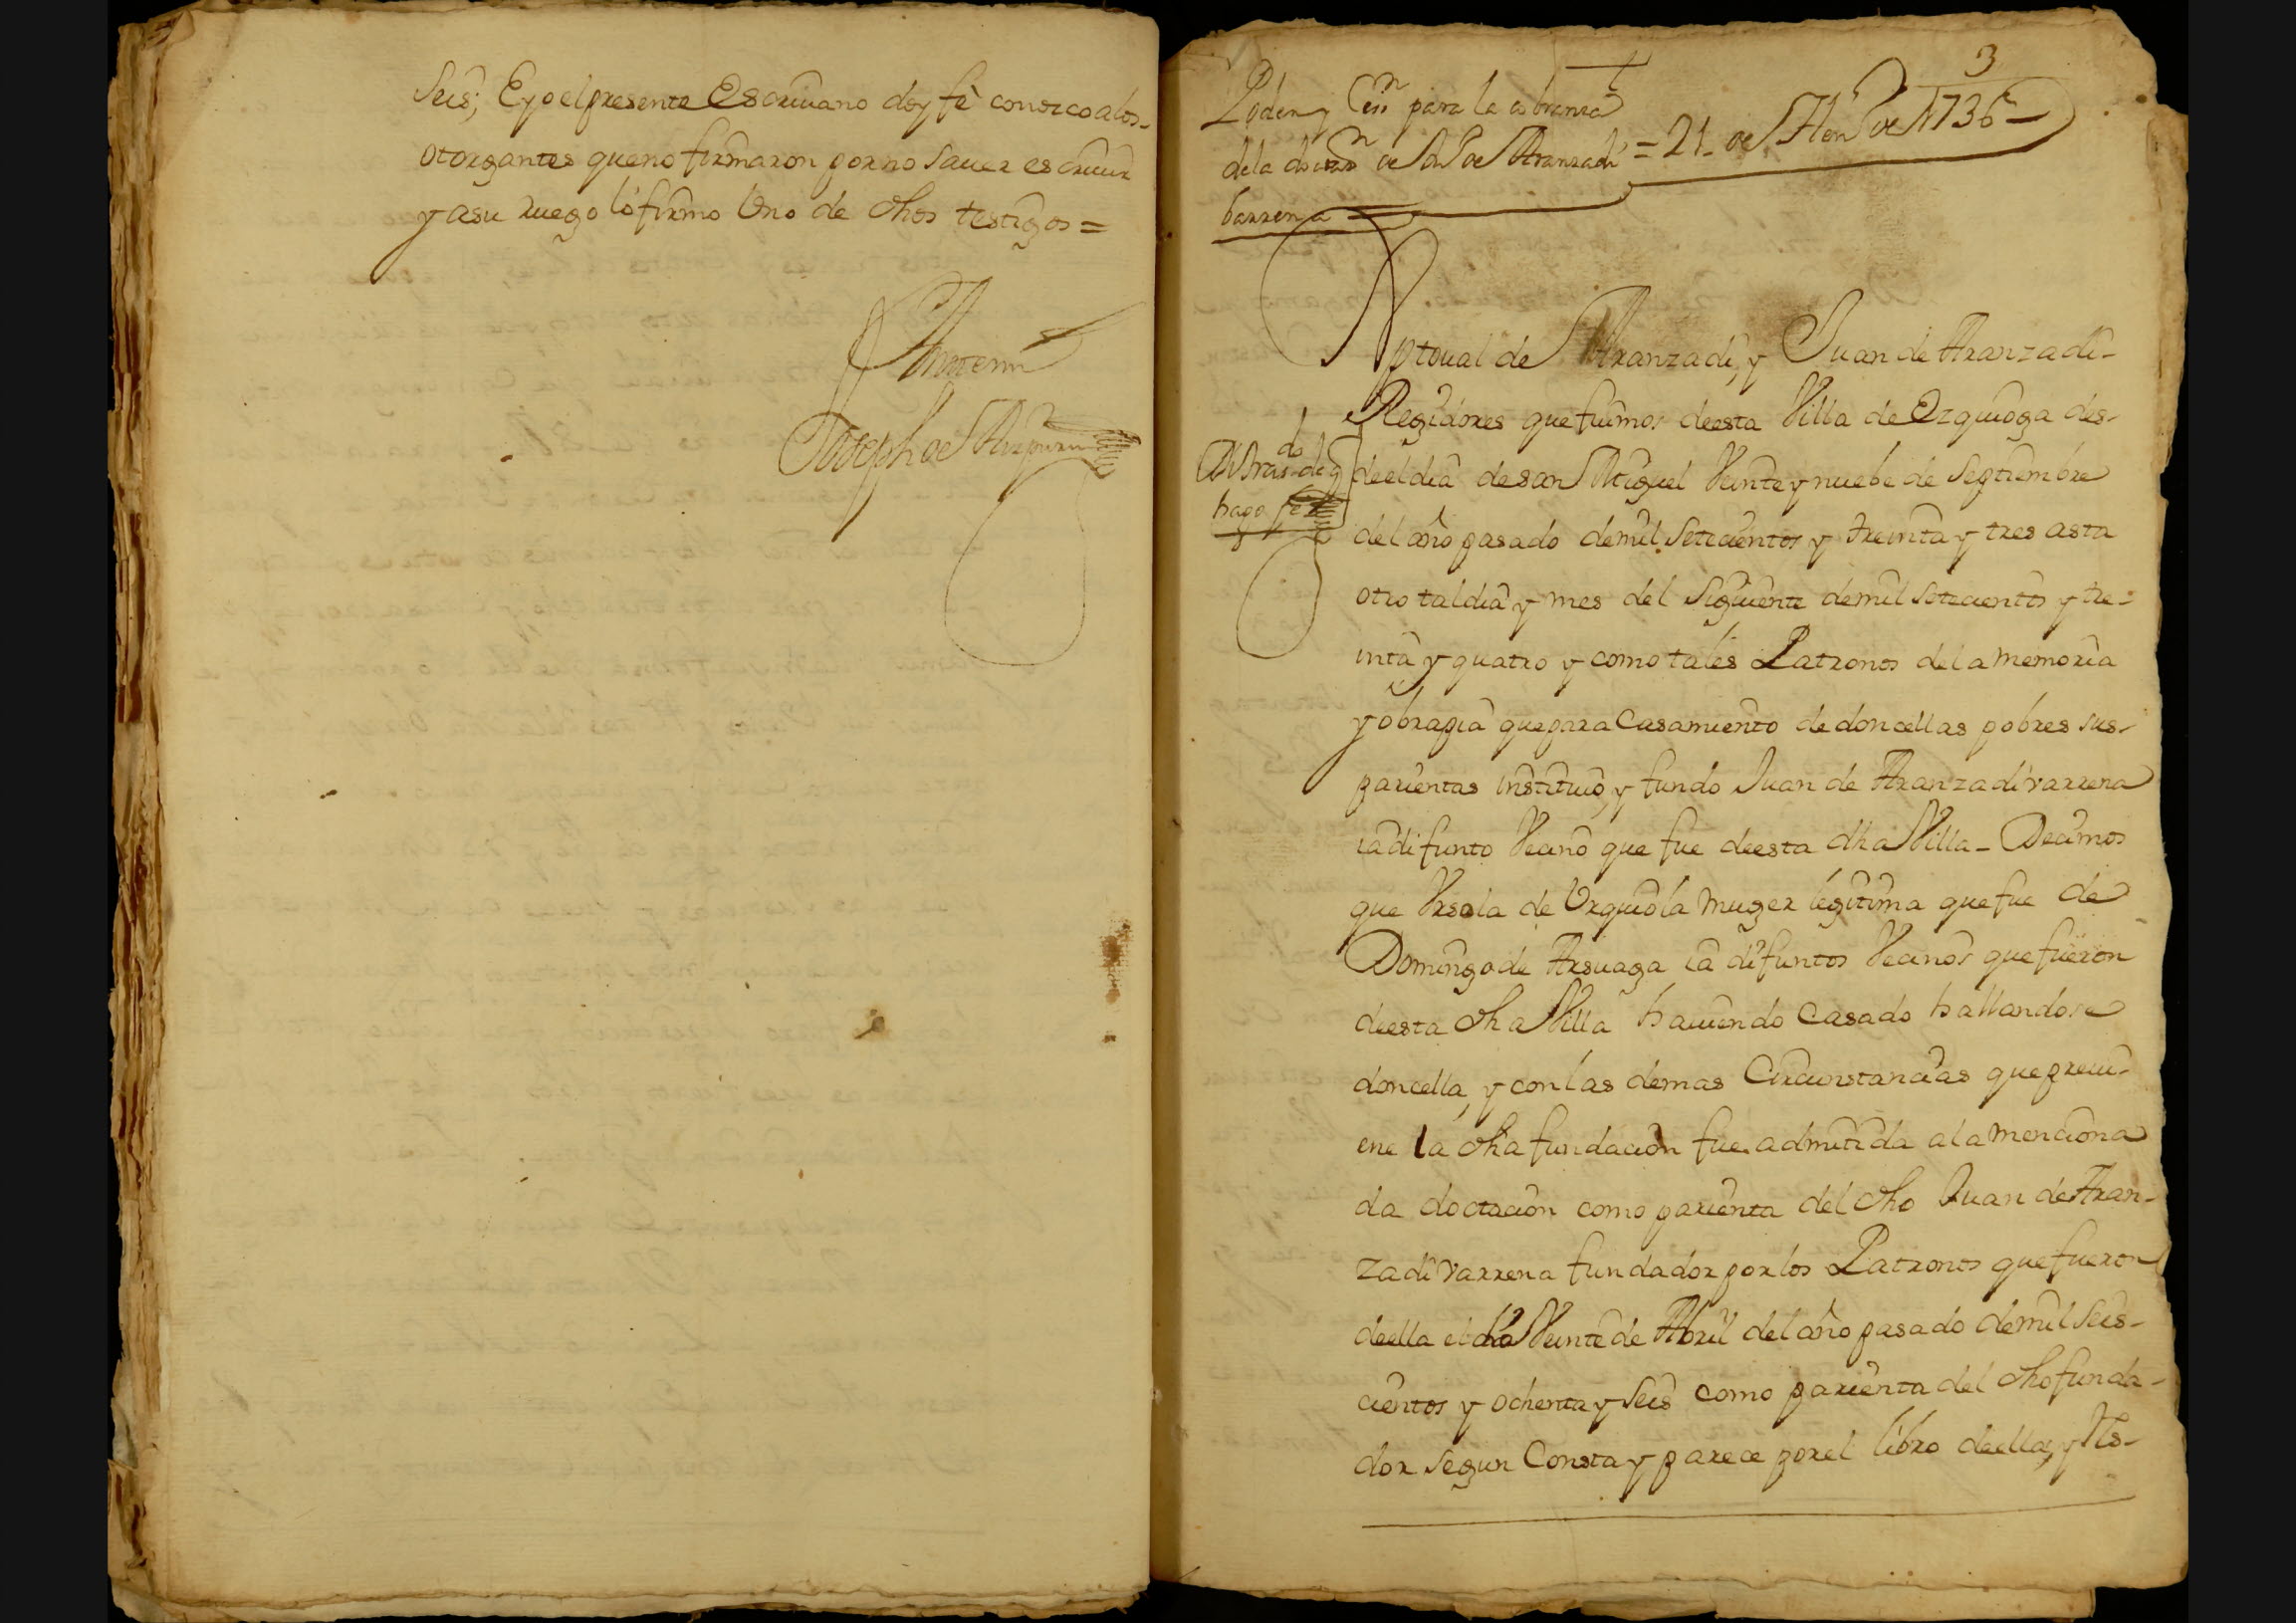 Seis; E yo el presente Escriuano doy fè conozco a los-
otorgantes que no firmaron por no sauer escriuir
y a su ruego lo firmo Uno de dhos testigos =
Ante mi
Joseph de
3
Poder y Cesn para la cobranza
de la dotazn de Ju de Aranzadi = 21 de Hen de 1736
barrena
Xptoual de Aranzadi, y Juan de Aranzadi-
Regidores que fuimos de esta Villa de Ezquioga des-
do
hago fe
de el dia de san Miguel Veinte y nuebe de Septiembre
del año pasado de mil setecientos y treinta y tres asta
otro tal dia y mes del siguiente de mil setecientos y tre-
inta y quatro y como tales Patronos de la memoria
y obra pia que para Casamiento de doncellas pobres sus-
parientas instituio, y fundo Juan de Aranzadi varrena
ia difunto Vecino que fue de esta dha Villa - Decimos
que Vrsola de Vrquiola muger legitima que fue de
Domingo de Arsuaga ia difuntos Vecinos que fueron
de esta dha Villa hauiendo Casado hallandose
doncella, y con las demas Circunstancias que preui-
ene la dha fundacion fue admitida a la menciona
da doctacion como parienta del dho Juan de Aran-
zadi varrena fundador por los Patronos que fueron
de ella el dia Veinte de Abril del año pasado de mil seis-
cientos y ochenta y seis como parienta del dho funda-
dor segun Consta y parece por el libro de ella, y As-